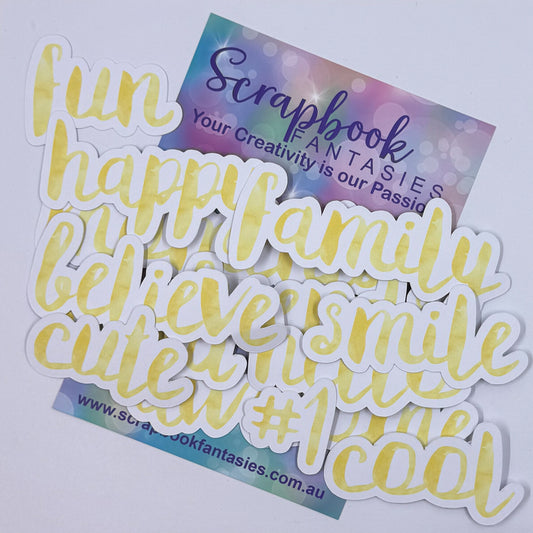 Scrapbook
FANTASIES
Your Creativity is our Passion
fun
happy
family
believe
smile
cute
hello
#1
cool
www.scrapbookfantasies.com.au